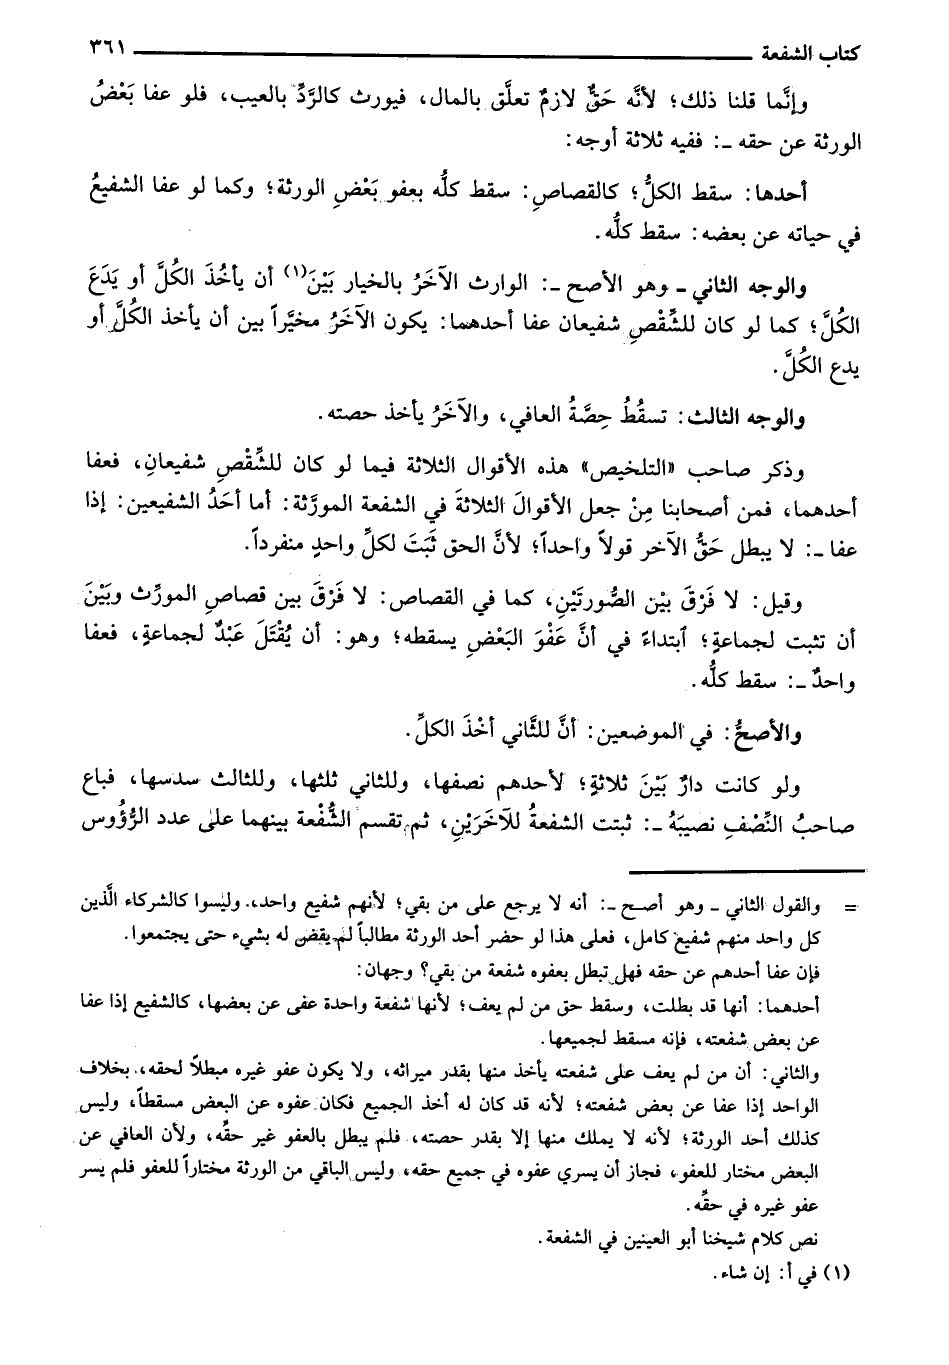 كتاب الشفعة ٣٦١
وإنَّما قلنا ذلك؛ لأنَّه حَقٌّ لازمٌ تعلَّق بالمال، فيورث كالرَّدِّ بالعيب، فلو عفا بَعْضُ
الورثة عن حقه ـ: ففيه ثلاثة أوجه:
أحدها: سقط الكلُّ؛ كالقصاصِ: سقط كلُّه بعفو بَعْضِ الورثة؛ وكما لو عفا الشفيعُ
في حياته عن بعضه: سقط كلُّه.
والوجه الثاني ـ وهو الأصح ـ: الوارث الآخَرُ بالخيار بَيْنَ(١) أن يأخُذَ الكُلَّ أو يَدَعَ
الكُلَّ؛ كما لو كان للشِّقْصِ شفيعان عفا أحدهما: يكون الآخَرُ مخيَّراً بين أن يأخذ الكُلَّ أو
يدع الكُلَّ.
والوجه الثالث: تسقُطُ حِصَّةُ العافي، والآخَرُ يأخذ حصته.
وذكر صاحب «التلخيص» هذه الأقوال الثلاثة فيما لو كان للشِّقْصِ شفيعانِ، فعفا
أحدهما، فمن أصحابنا مِنْ جعل الأقوالَ الثلاثةَ في الشفعة المورَّثة: أما أحَدُ الشفيعين: إذا
عفا ـ: لا يبطل حَقُّ الآخر قولاً واحداً؛ لأنَّ الحق ثَبَتَ لكلِّ واحدٍ منفرداً.
وقيل: لا فَرْقَ بيْن الصُّورتَيْنِ، كما في القصاص: لا فَرْقَ بين قصاصِ المورِّث وبَيْنَ
أن تثبت لجماعةٍ؛ ٱبتداءً في أنَّ عَفْوَ البَعْضِ يسقطه؛ وهو: أن يُقْتَلَ عَبْدٌ لجماعةٍ، فعفا
واحدٌ ـ: سقط كلُّه.
والأصحُّ: في الموضعين: أنَّ للثَّاني أخْذَ الكلِّ.
ولو كانت دارٌ بَيْنَ ثلاثةٍ؛ لأحدهم نصفها، وللثاني ثلثها، وللثالث سدسها، فباع
صاحبُ النِّصْفِ نصيبَهُ ـ: ثبتت الشفعةُ للآخَرَيْنِ، ثم تقسم الشُّفْعة بينهما على عدد الرُّؤُوس
= والقول الثاني ـ وهو أصح ـ: أنه لا يرجع على من بقي؛ لأنهم شفيع واحد، وليسوا كالشركاء الَّذين
كل واحد منهم شفيع كامل، فعلى هذا لو حضر أحد الورثة مطالباً لم يقض له بشيء حتى يجتمعوا.
فإن عفا أحدهم عن حقه فهل تبطل بعفوه شفعة من بقي؟ وجهان:
أحدهما: أنها قد بطلت، وسقط حق من لم يعف؛ لأنها شفعة واحدة عفى عن بعضها، كالشفيع إذا عفا
عن بعض شفعته، فإنه مسقط لجميعها.
والثاني: أن من لم يعف على شفعته يأخذ منها بقدر ميراثه، ولا يكون عفو غيره مبطلاً لحقه، بخلاف
الواحد إذا عفا عن بعض شفعته؛ لأنه قد كان له أخذ الجميع فكان عفوه عن البعض مسقطاً، وليس
كذلك أحد الورثة؛ لأنه لا يملك منها إلا بقدر حصته، فلم يبطل بالعفو غير حقِّه، ولأن العافي عن
البعض مختار للعفو، فجاز أن يسري عفوه في جميع حقه، وليس الباقي من الورثة مختاراً للعفو فلم يسر
عفو غيره في حقِّه.
نص كلام شيخنا أبو العينين في الشفعة.
(١) في أ: إن شاء.